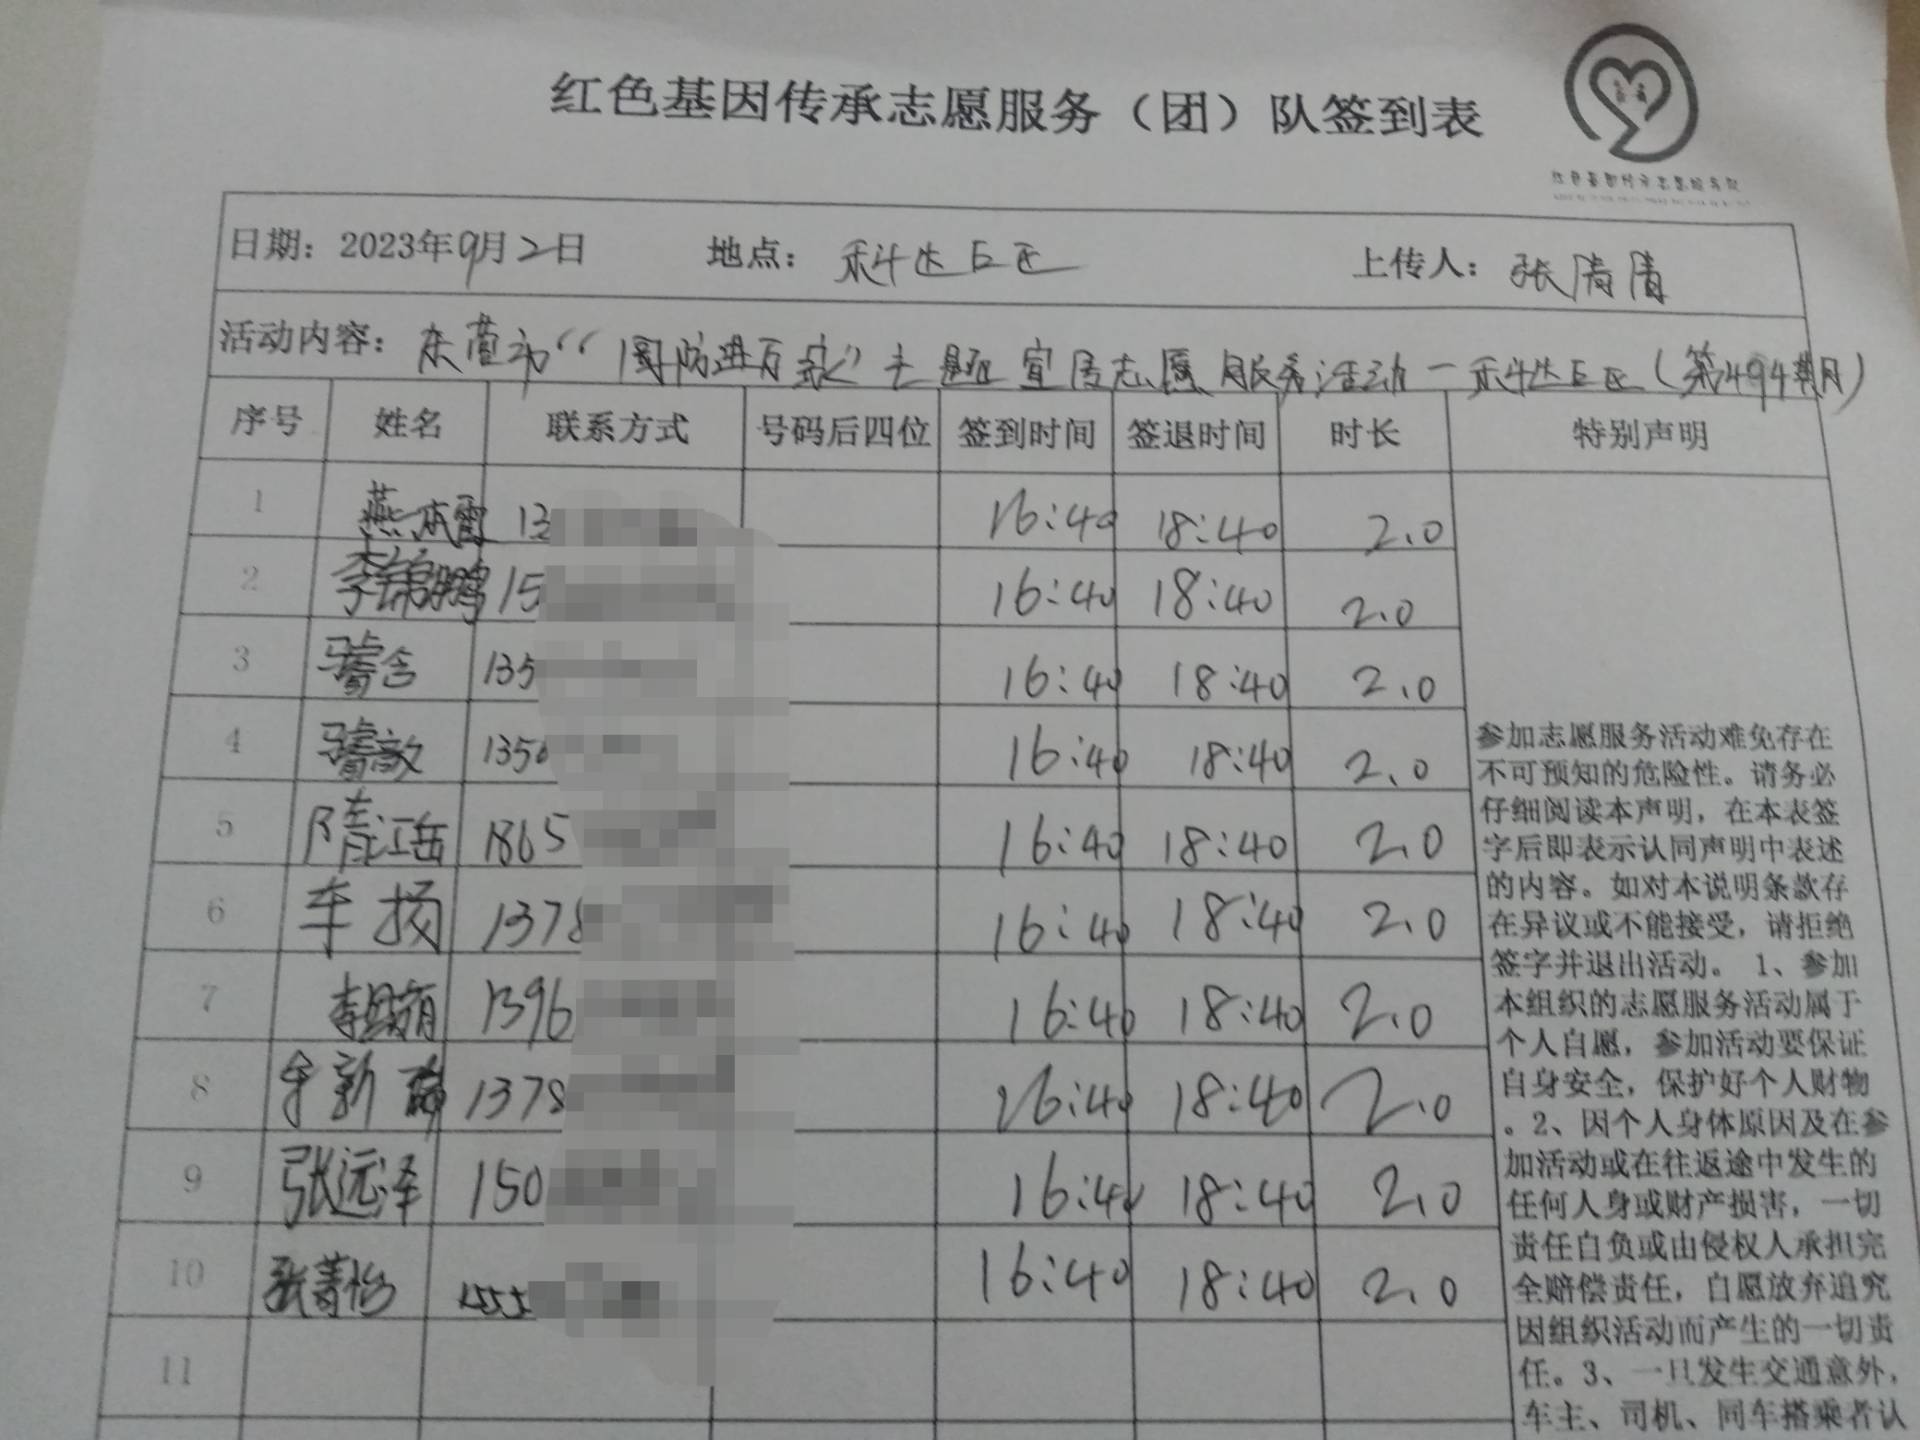 红色基因传承志愿服务（团）队签到表
日期：2023年9月2日 地点：科达E区 上传人：张清清
活动内容：东营市“国防进百家”主题宣传志愿服务活动－科达E区（第494期）
序号 姓名 联系方式 号码后四位 签到时间 签退时间 时长 特别声明
1 燕本雷 13 16:40 18:40 2.0
2 李锦鹏 15 16:40 18:40 2.0
3 135 16:40 18:40 2.0
4 1350 16:40 18:40 2.0
5 隋江岳 1865 16:40 18:40 2.0
6 车扬 1378 16:40 18:40 2.0
7 1396 16:40 18:40 2.0
8 1378 16:40 18:40 2.0
9 张远泽 150 16:40 18:40 2.0
10 张菁怡 1555 16:40 18:40 2.0
11
参加志愿服务活动难免存在
不可预知的危险性。请务必
仔细阅读本声明，在本表签
字后即表示认同声明中表述
的内容。如对本说明条款存
在异议或不能接受，请拒绝
签字并退出活动。1、参加
本组织的志愿服务活动属于
个人自愿，参加活动要保证
自身安全，保护好个人财物
。2、因个人身体原因及在参
加活动或在往返途中发生的
任何人身或财产损害，一切
责任自负或由侵权人承担完
全赔偿责任，自愿放弃追究
因组织活动而产生的一切责
任。3、一旦发生交通意外，
车主、司机、同车搭乘者认